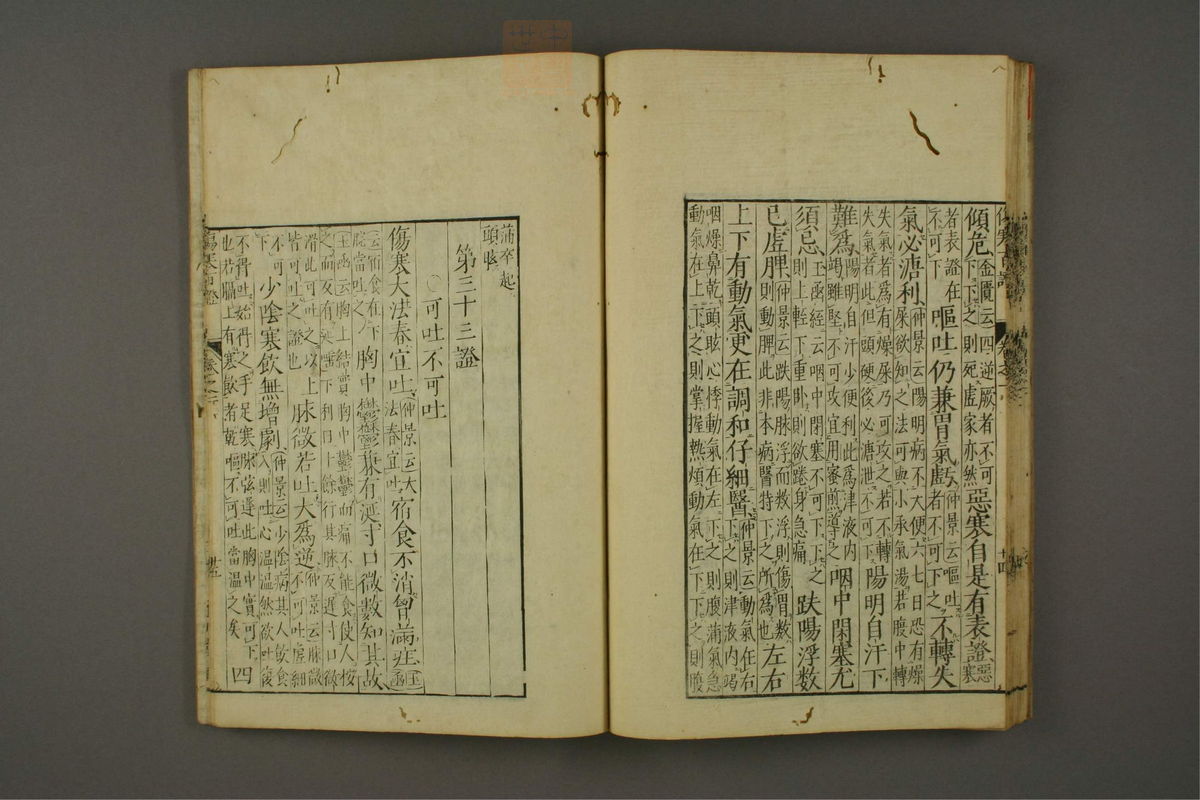 傾危金匱云四逆厥者不可下下之則死虛家亦然惡寒自是有表證惡寒
者表證在不可下嘔吐仍兼胃氣虧仲景云嘔吐者不可下之不轉失
氣必溏利仲景云陽明病不大便六七日恐有燥屎欲知之法可與小承氣湯若腹中轉
失氣者為有燥屎乃可攻之若不轉失氣者此但頭硬後必溏泄不可下陽明自汗下
難為陽明自汗少便利此為津液內竭雖堅不可攻宜用蜜煎導之咽中閉塞尤
須忌玉函經云咽中閉塞不可下下之則上輕下重卧則欲踡身急痛趺陽浮数
已虛脾仲景云趺陽脉浮而数浮則傷胃数則動脾此非本病醫特下之所為也左右
上下有動氣更在調和仔細醫仲景云動氣在右下之則津液內竭
咽燥鼻乾頭眩心悸動氣在左下之則腹滿氣急動氣在上下之則掌握熱煩動氣在下下之則腹
滿卒起頭眩
第三十三證
可吐不可吐
傷寒大法春宜吐仲景云大法春宜吐宿食不消當滿推玉函
云宿食在下脘當吐之胸中鬱鬱兼有涎寸口微數知其故
玉函云胸上結實胸中鬱鬱而痛不能食使人按之而反有涎唾下利日十餘行其脉反遲寸口微
滑此可吐之以上皆可吐之證也脉微若吐大為逆仲景云脉微不可吐虛細
不可下少陰寒飲無增劇仲景云少陰病其人飲食入則吐心温温然欲吐復
不得吐始得之手足寒脉弦遲此胸中實可下也若膈上有寒飲者乾嘔不可吐當温之矣四
卷之二